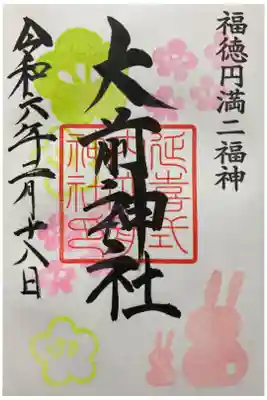 福徳円満二福神
大前神社
延喜式
令和六年二月十八日